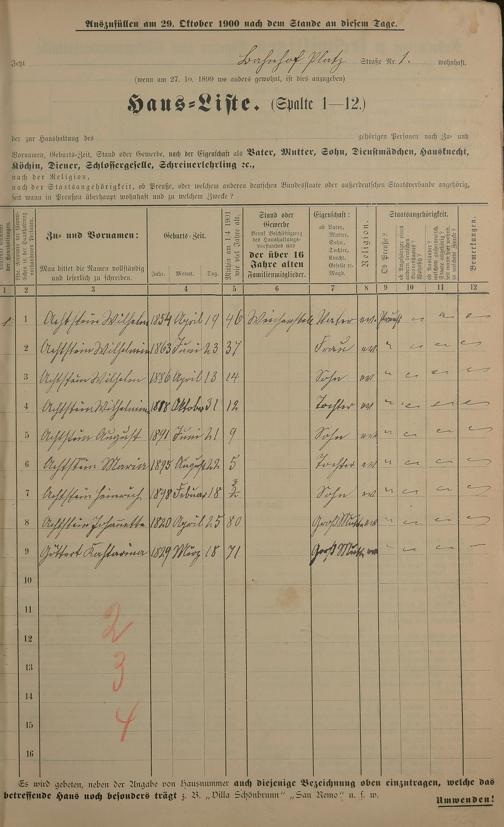 Auszufüllen am 29. Oktober 1900 nach dem Stande an diesem Tage.
Jetzt Bahnhof Platz Straße Nr. 1. wohnhaft.
(wenn am 27. 10. 1899 wo anders gewohnt, ist dies anzugeben)
Haus=Liste. (Spalte 1—12.)
der zur Haushaltung des gehörigen Personen nach Zu- und
Vornamen, Geburts-Zeit, Stand oder Gewerbe, nach der Eigenschaft als Vater, Mutter, Sohn, Dienstmädchen, Hausknecht,
Köchin, Diener, Schlossergeselle, Schreinerlehrling ꝛc.,
nach der Religion,
nach der Staatsangehörigkeit, ob Preuße, oder welchem anderen deutschen Bundesstaate oder außerdeutschen Staatsverbande angehörig,
seit wann in Preußen überhaupt wohnhaft und zu welchem Zwecke?
Zu= und Vornamen:
Man bittet die Namen vollständig und leserlich zu schreiben.
Geburts-Zeit.
Jahr. Monat. Tag.
Stand oder Gewerbe
der über 16 Jahre alten Familienmitglieder.
Eigenschaft:
ob Vater, Mutter, Sohn, Tochter, Knecht, Geselle ꝛc. Magd.
Religion.
Staatsangehörigkeit.
Ob Preuße?
Bemerkungen.
1 2 3 4 5 6 7 8 9 10 11 12
1 1 Achtstein Wilhelm 1854 April 19 46 Weichenstell Vater ev. Preuß
2 Achtstein Wilhelmine 1863 Juni 23 37 Frau ev.
3 Achtstein Wilhelm 1886 April 13 14 Sohn ev.
4 Achtstein Wilhelmine 1888 Oktober 31 12 Tochter ev.
5 Achtstein August 1891 Juni 21 9 Sohn ev.
6 Achtstein Maria 1895 August 22 5 Tochter ev.
7 Achtstein Heinrich 1898 Februar 18 2 Sohn ev.
8 Achtstein Johanette 1820 April 25 80 Groß Mutter ev.
9 Göttert Katharina 1829 März 18 71 Groß Mutter ev.
10
11
12
13
14
15
16
2
3
4
Es wird gebeten, neben der Angabe von Hausnummer auch diejenige Bezeichnung oben einzutragen, welche das
betreffende Haus noch besonders trägt z. B. „Villa Schönbrunn" „San Remo" u. s. w.
Umwenden!